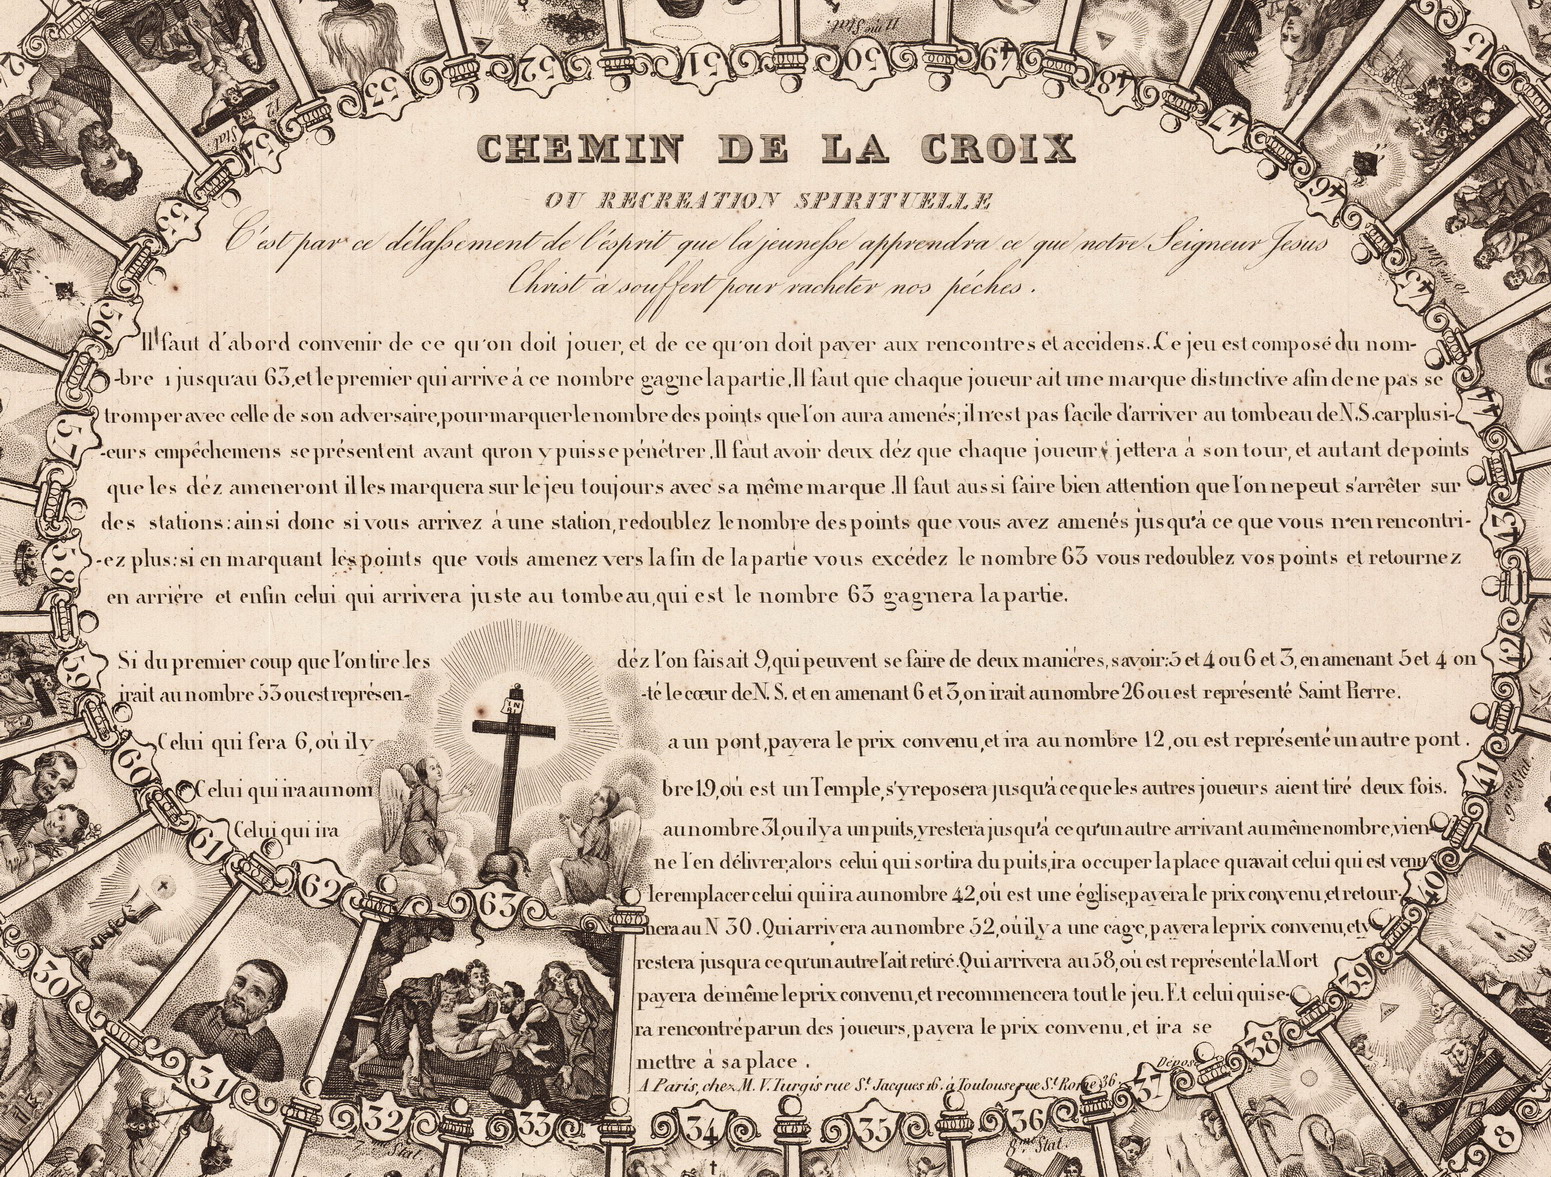 CHEMIN DE LA CROIX
OU RECREATION SPIRITUELLE
C'est par ce délassement de l'ésprit que la jeunesse apprendra ce que notre Seigneur Jesus
Christ à souffert pour racheter nos péches .
Il faut d'abord convenir de ce qu'on doit jouer, et de ce qu'on doit payer aux rencontres et accidens. Ce jeu est composé du nom-
-bre 1 jusqu'au 63, et le premier qui arrive á ce nombre gagne la partie, Il faut que chaque joueur ait une marque distinctive afin de ne pas se
tromper avec celle de son adversaire, pour marquer le nombre des points que l'on aura amenés; il n'est pas facile d'arriver au tombeau de N.S. car plusi-
-eurs empêchemens se présentent avant qu'on y puisse pénétrer. Il faut avoir deux déz que chaque joueur jettera à son tour, et autant de points
que les déz ameneront il les marquera sur le jeu toujours avec sa même marque. Il faut aussi faire bien attention que l'on ne peut s'arrêter sur
des stations: ainsi donc si vous arrivez à une station, redoublez le nombre des points que vous avez amenés jusqu'à ce que vous n'en rencontri-
-ez plus: si en marquant les points que vous amenez vers la fin de la partie vous excédez le nombre 63 vous redoublez vos points et retournez
en arrière et enfin celui qui arrivera juste au tombeau, qui est le nombre 63 gagnera la partie.
Si du premier coup que l'on tire les déz l'on faisait 9, qui peuvent se faire de deux manières, savoir: 5 et 4 ou 6 et 3, en amenant 5 et 4 on
irait au nombre 53 ou est représen- -té le cœur de N.S. et en amenant 6 et 3, on irait au nombre 26 ou est représenté Saint Pierre.
Celui qui fera 6, où il y a un pont, payera le prix convenu, et ira au nombre 12, ou est représenté un autre pont.
Celui qui ira au nom bre 19, où est un Temple, s'y reposera jusqu'à ce que les autres joueurs aient tiré deux fois.
Celui qui ira au nombre 31, ou il y a un puits, y restera jusqu'á ce qu'un autre arrivant au même nombre, vien
ne l'en délivrer, alors celui qui sortira du puits, ira occuper la place qu'avait celui qui est venu
le remplacer celui qui ira au nombre 42, où est une église, payera le prix convenu, et retour-
nera au N 30. Qui arrivera au nombre 52, où il y a une cage, payera le prix convenu, et y
restera jusqu'a ce qu'un autre l'ait retiré. Qui arrivera au 58, où est représenté la Mort
payera de même le prix convenu, et recommencera tout le jeu. Et celui qui se-
ra rencontré par un des joueurs, payera le prix convenu, et ira se
mettre á sa place .
A Paris, chez M. V. Turgis rue St. Jacques 16. à Toulouse rue St. Rome 36.
Déposé
INRI
15
30
31
32
33
34
35
36
37
38
8
39
40
41
42
43
44
45
46
47
48
49
50
51
52
53
54
55
56
57
58
59
60
61
62
63
8me Stat.
9me Stat.
10me Stat.
11me Stat.
12
Stat
Stat.